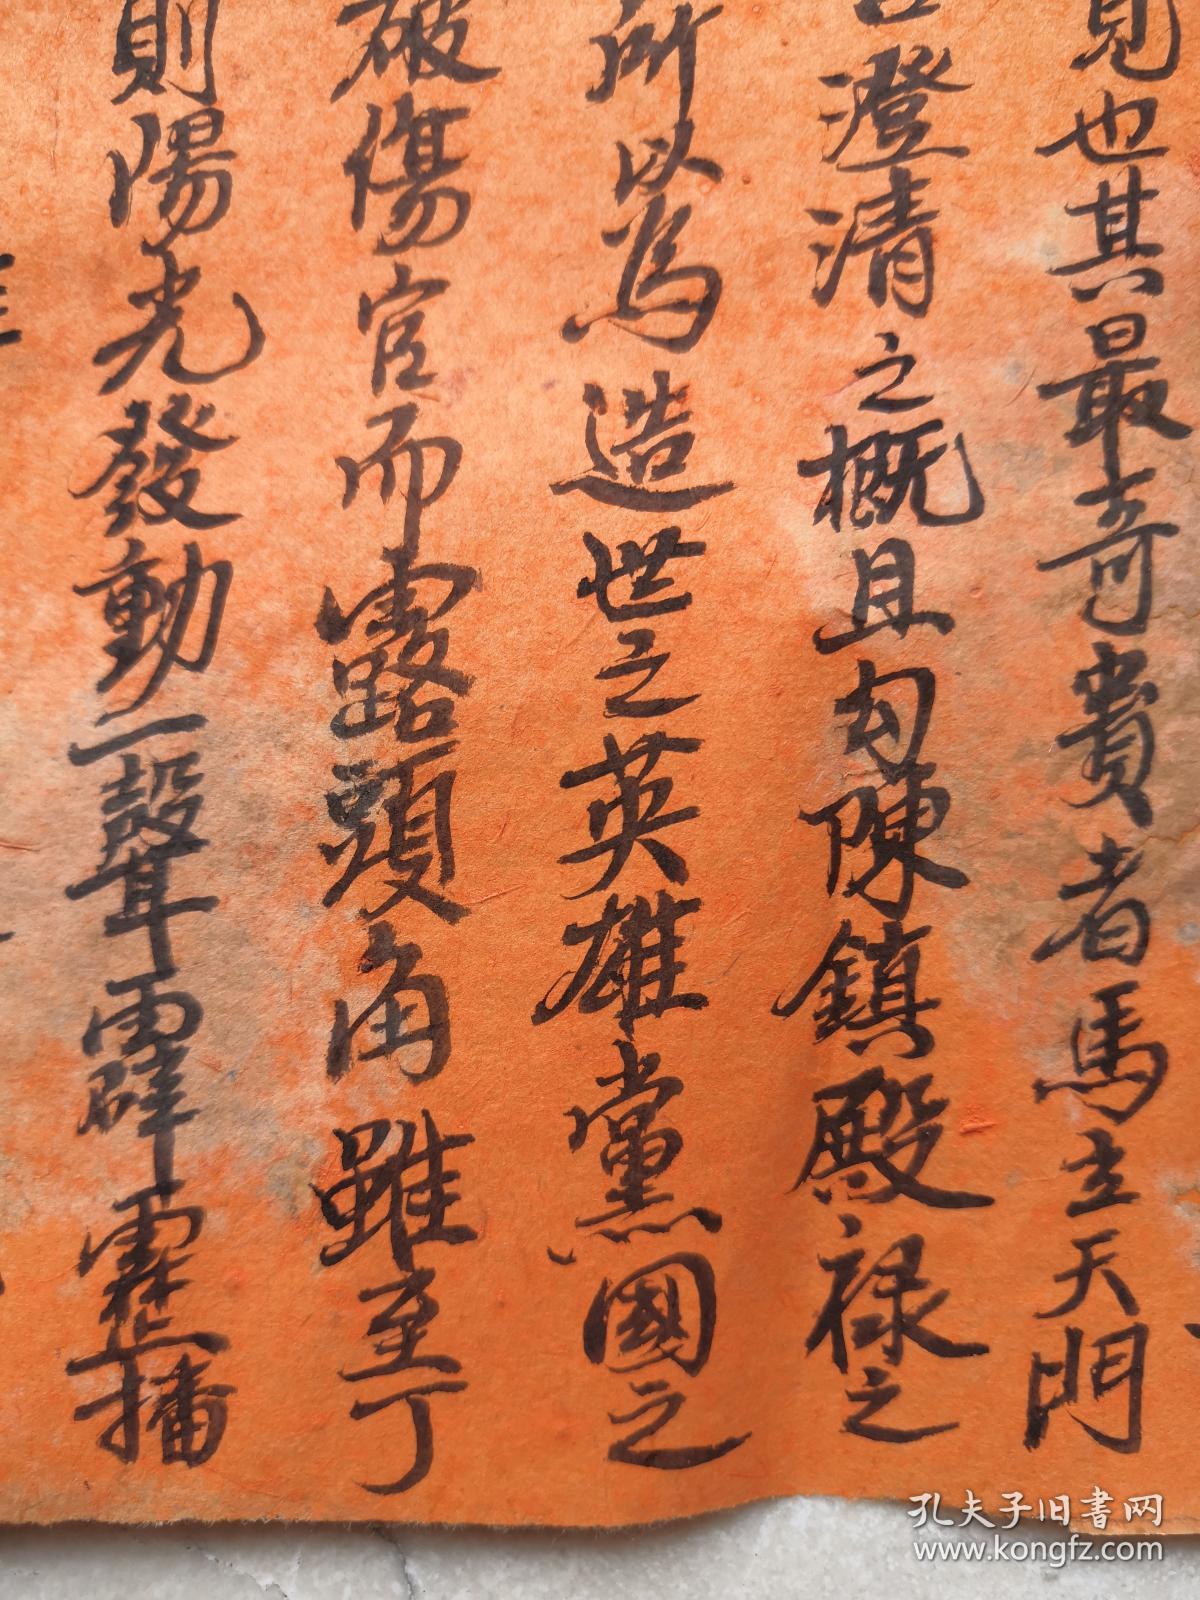 見也其最奇貴者馬主天門
澄清之概且勾陳鎮殿祿之
所以為造世之英雄黨國之
破傷官而露頭角雖至丁
則陽光發動一聲霹靂播
孔夫子旧书网
www.kongfz.com